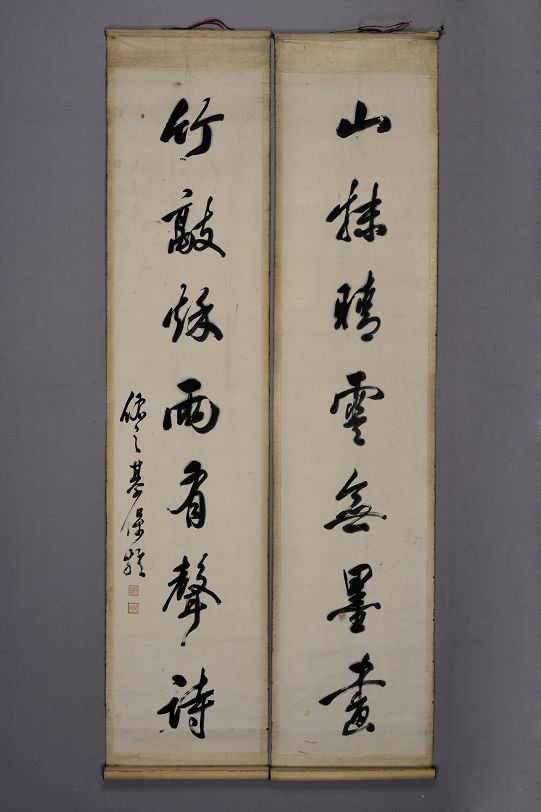 山抹晴雲無墨畫
竹敲秋雨有聲詩